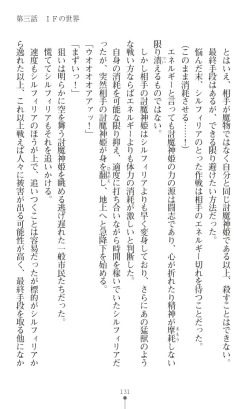 第三話　ＩＦの世界
とはいえ、相手が魔物ではなく自分と同じ討魔神姫である以上、
最終手段はあるが、できる限り避けたい方法だった。
悩んだ末、シルフィリアのとった作戦は相手のエネルギー切れを待つことだった。
（このまま消耗させる……っ）
エネルギーと言っても討魔神姫の力の源は闘志であり、心が折れたり精神が摩耗しない
限り潰えるものではない。
しかし相手の討魔神姫はシルフィリアよりも早く変身しており、さらにあの猛獣のよう
な戦い方ならばエネルギーよりも体力の消耗が激しいと判断した。
自身の消耗を可能な限り抑え、適度に打ち合いながら時間を稼いでいたシルフィリアだ
ったが、突然相手の討魔神姫が身を翻し、地上へと急降下を始める。
「ウオオオオアァッ！」
狙いは明らかに空を舞う討魔神姫を眺める逃げ遅れた一般市民たちだった。
慌ててシルフィリアもそれを追いかける。
速度もシルフィリアのほうが上で、追いつくことは容易だったが標的がシルフィリアか
ら逸れた以上、これ以上戦えば人々に被害が出る可能性が高く、最終手段を取る他になか
131